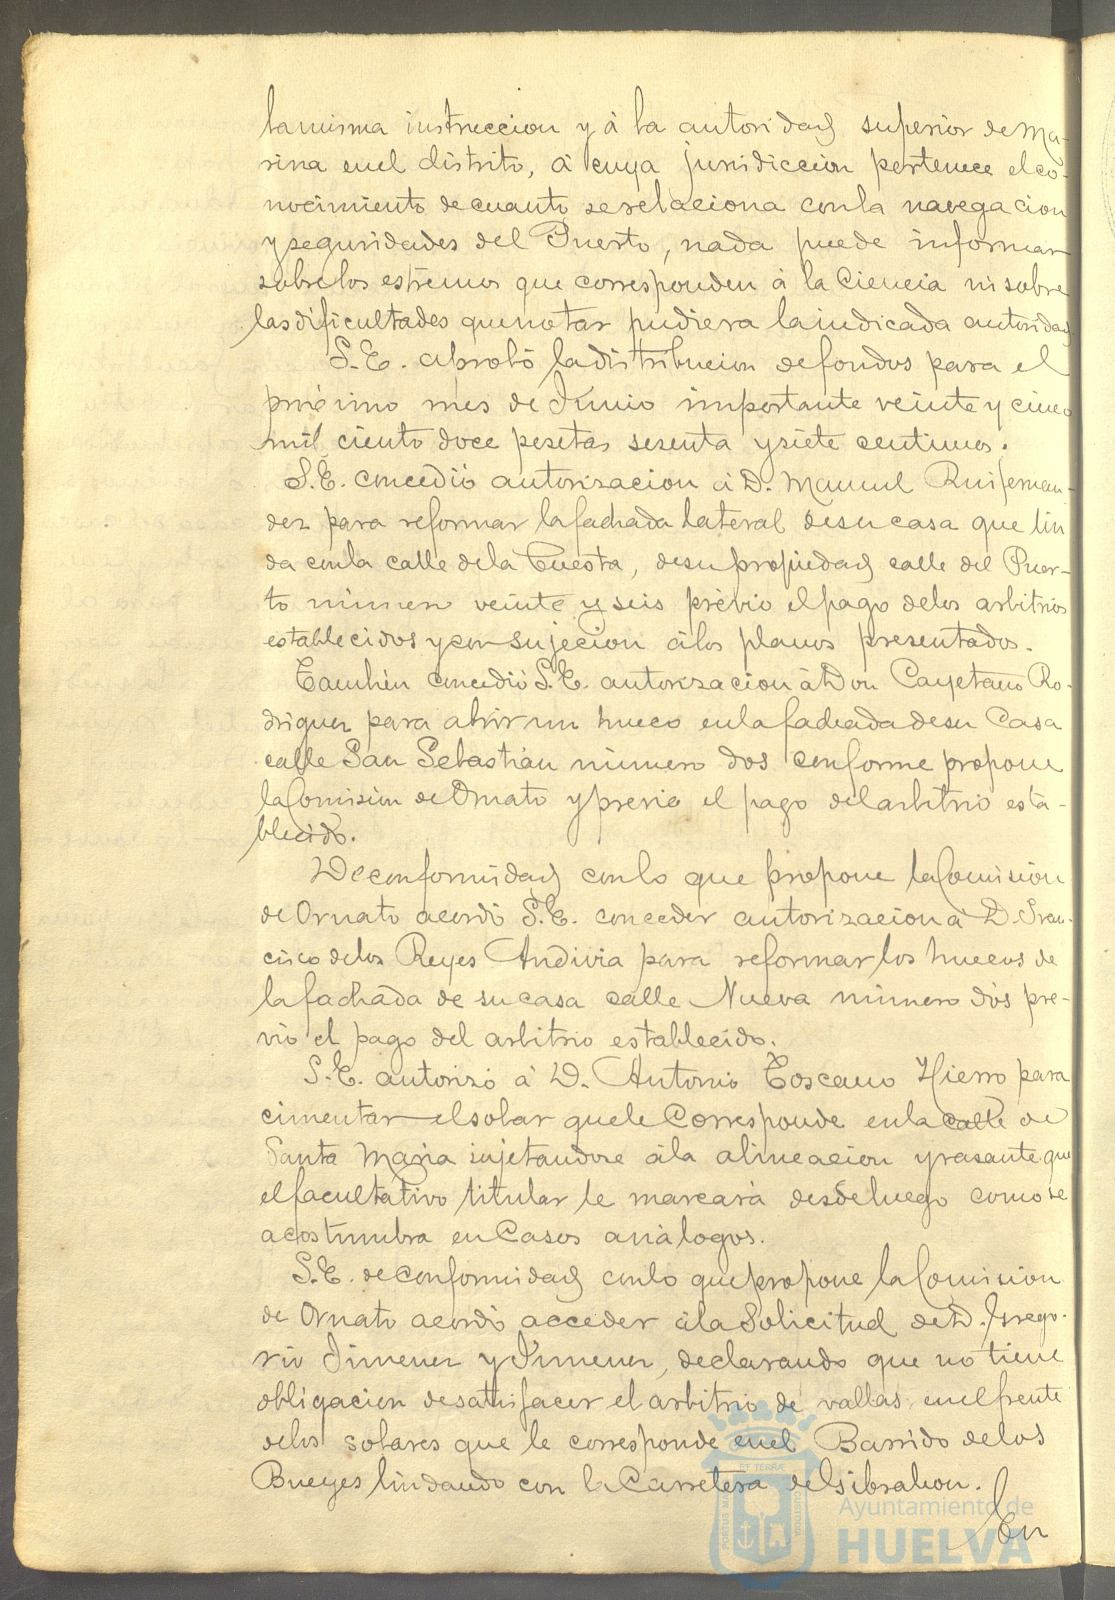 la misma instruccion y á la autoridad superior de Ma-
rina en el distrito, á cuya jurisdiccion pertenece el co-
nocimiento de cuanto se relaciona con la navegacion
y seguridades del Puerto, nada puede informar
sobre los estremos que corresponden á la Ciencia ni sobre
las dificultades que notar pudiera la indicada autoridad
S.E. aprobó la distribucion de fondos para el
próximo mes de Junio importante veinte y cinco
mil ciento doce pesetas sesenta y siete centimos.
S.E. concedió autorizacion á D. Manuel Ruifernan-
dez para reformar la fachada lateral de su casa que lin
da con la calle de la Cuesta, de su propiedad calle del Puer-
to número veinte y seis prévio el pago de los arbitrios
establecidos y con sujecion á los planos presentados.
Tambien concedió S.E. autorizacion á Don Cayetano Ro-
driguez para abrir un hueco en la fachada de su Casa
calle San Sebastián número dos conforme propone
la Comision de Ornato y previo el pago del arbitrio esta-
blecido.
De conformidad con lo que propone la Comision
de Ornato acordó S.E. conceder autorizacion á D. Fran-
cisco de los Reyes Andivia para reformar los huecos de
la fachada de su casa calle Nueva número dos pre-
vio el pago del arbitrio establecido.
S.E. autorizó á D. Antonio Toscano Hierro para
cimentar el solar que le Corresponde en la Calle de
Santa Maria sujetandose á la alineacion y rasante que
el facultativo titular le marcará desde luego como se
acostumbra en Casos análogos.
S.E. de conformidad con lo que propone la Comision
de Ornato acordó acceder á la Solicitud de D. Grego-
rio Jimenez y Jimenez, declarando que no tiene
obligacion de satisfacer el arbitrio de vallas en el frente
de los solares que le corresponde en el Barrido de los
Bueyes lindando con la Carretera de Gibraleon.
En
PORTUS MARIS ET TERRÆ CUSTODIA
Ayuntamiento de
HUELVA